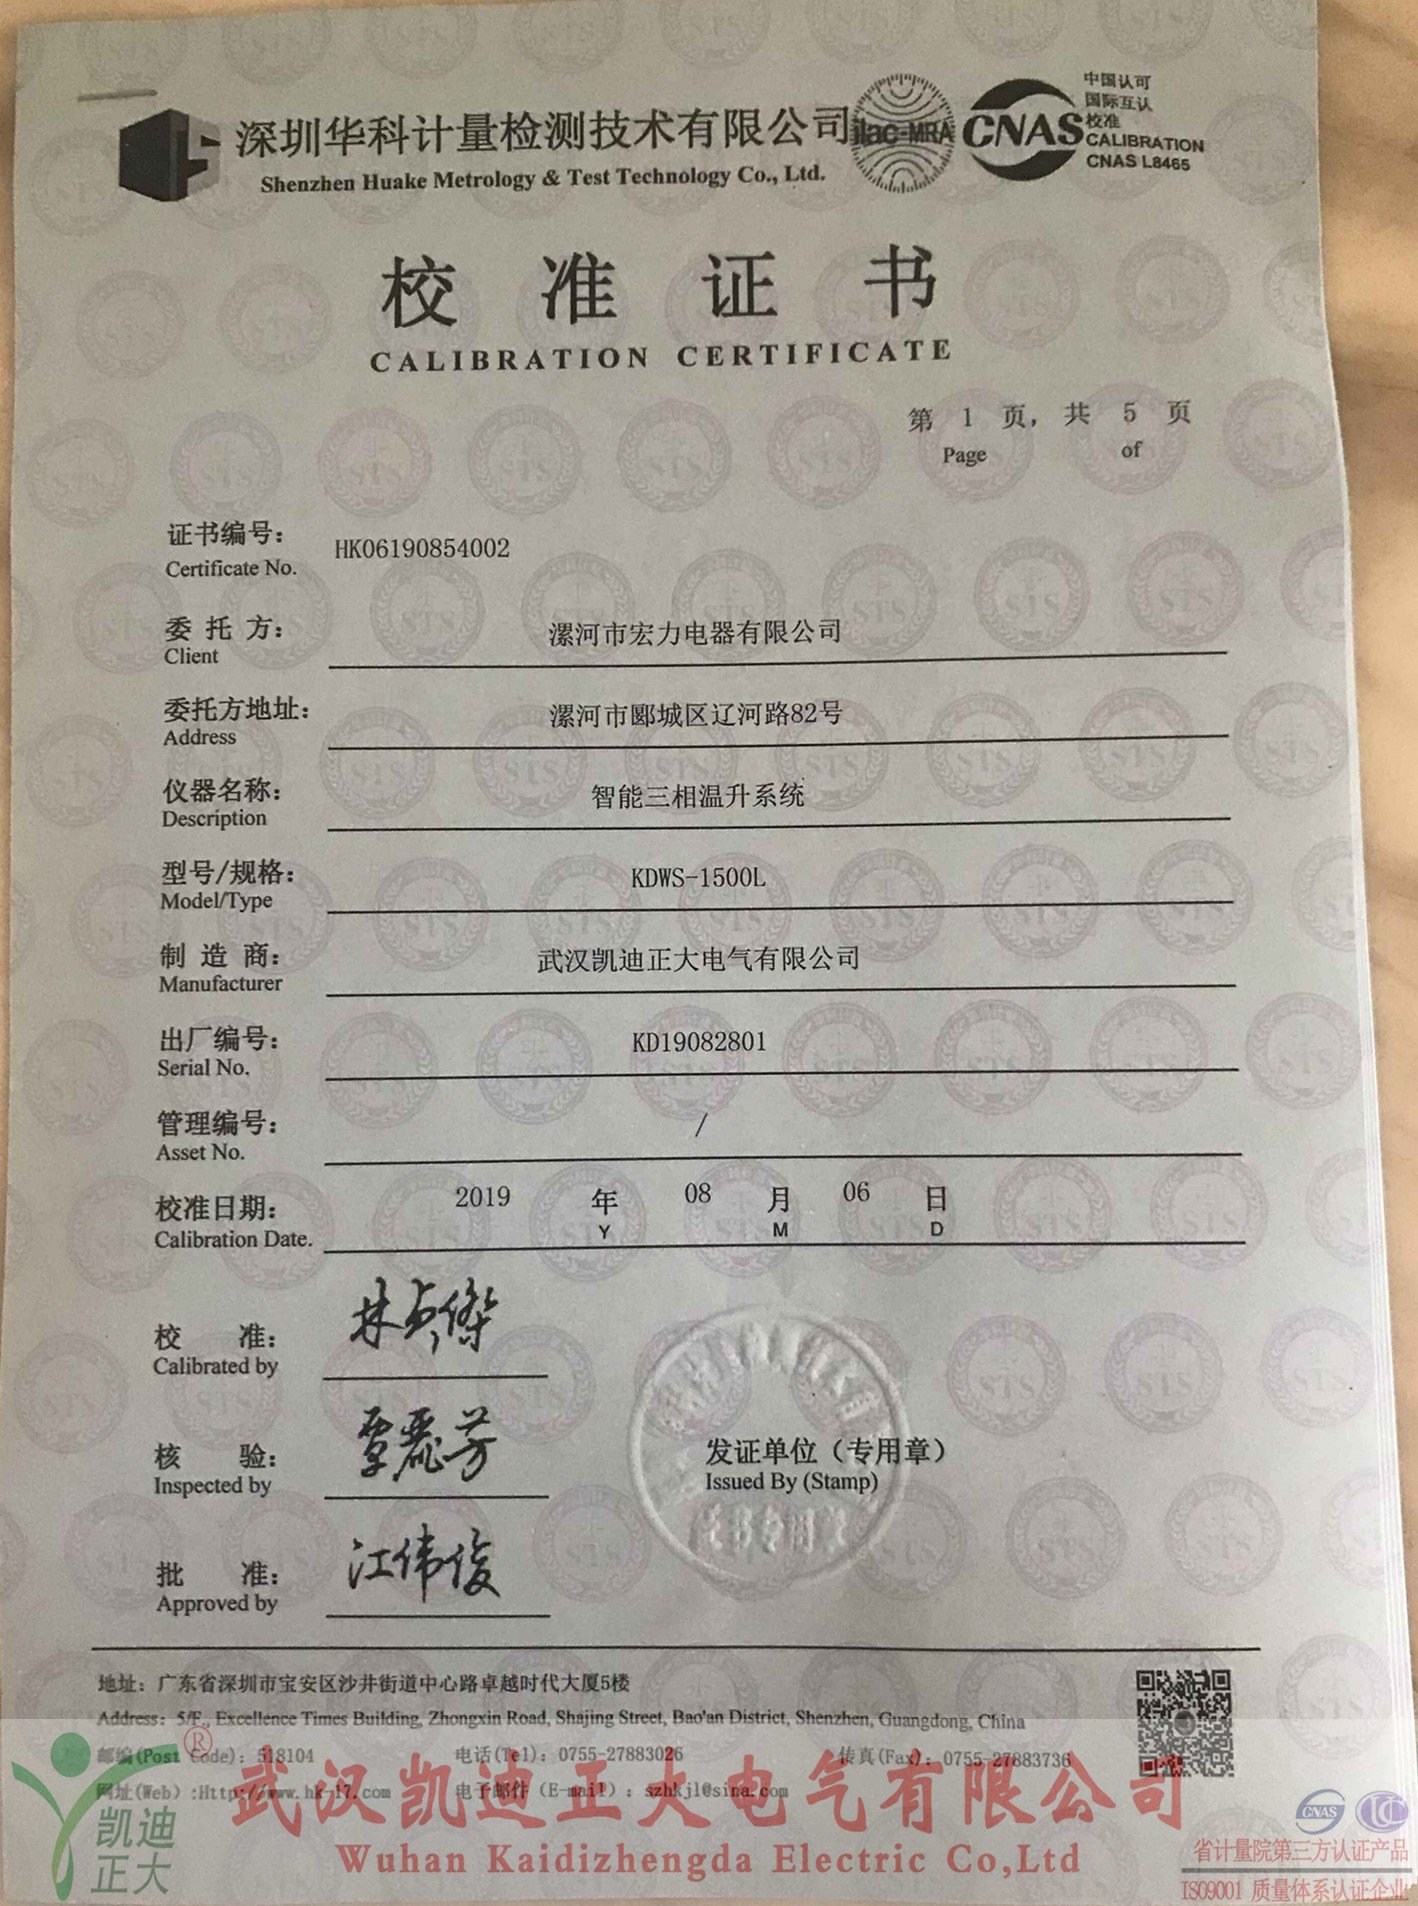 深圳华科计量检测技术有限公司
Shenzhen Huake Metrology & Test Technology Co., Ltd.
ilac-MRA
CNAS
中国认可
国际互认
校准
CALIBRATION
CNAS L8465
校 准 证 书
CALIBRATION CERTIFICATE
第 1 页, 共 5 页
Page of
证书编号: HK06190854002
Certificate No.
委 托 方: 漯河市宏力电器有限公司
Client
委托方地址: 漯河市郾城区辽河路82号
Address
仪器名称: 智能三相温升系统
Description
型号/规格: KDWS-1500L
Model/Type
制 造 商: 武汉凯迪正大电气有限公司
Manufacturer
出厂编号: KD19082801
Serial No.
管理编号: /
Asset No.
校准日期: 2019 年 08 月 06 日
Calibration Date. Y M D
校 准:
Calibrated by
核 验:
Inspected by
批 准: 江伟俊
Approved by
发证单位（专用章）
Issued By (Stamp)
地址：广东省深圳市宝安区沙井街道中心路卓越时代大厦5楼
Address: 5/F., Excellence Times Building, Zhongxin Road, Shajing Street, Bao'an District, Shenzhen, Guangdong, China
邮编(Post Code): 518104 电话(Tel): 0755-27883026 传真(Fax): 0755-27883736
网址(Web) :Http://www.hk-17.com 电子邮件（E-mail）: szhkjl@sina.com
®
凯迪
正大
武汉凯迪正大电气有限公司
Wuhan Kaidizhengda Electric Co,Ltd
CNAS
省计量院第三方认证产品
ISO9001 质量体系认证企业